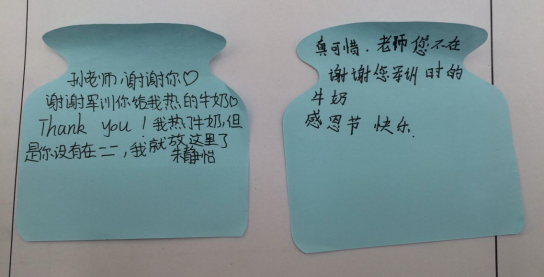 孙老师,谢谢你♡
谢谢军训你给我热的牛奶♡
Thank you!我热了牛奶,但
是你没有在二二,我就放这里了
朱静怡
真可惜.老师您不在
谢谢您军训时的
牛奶
感恩节 快乐.